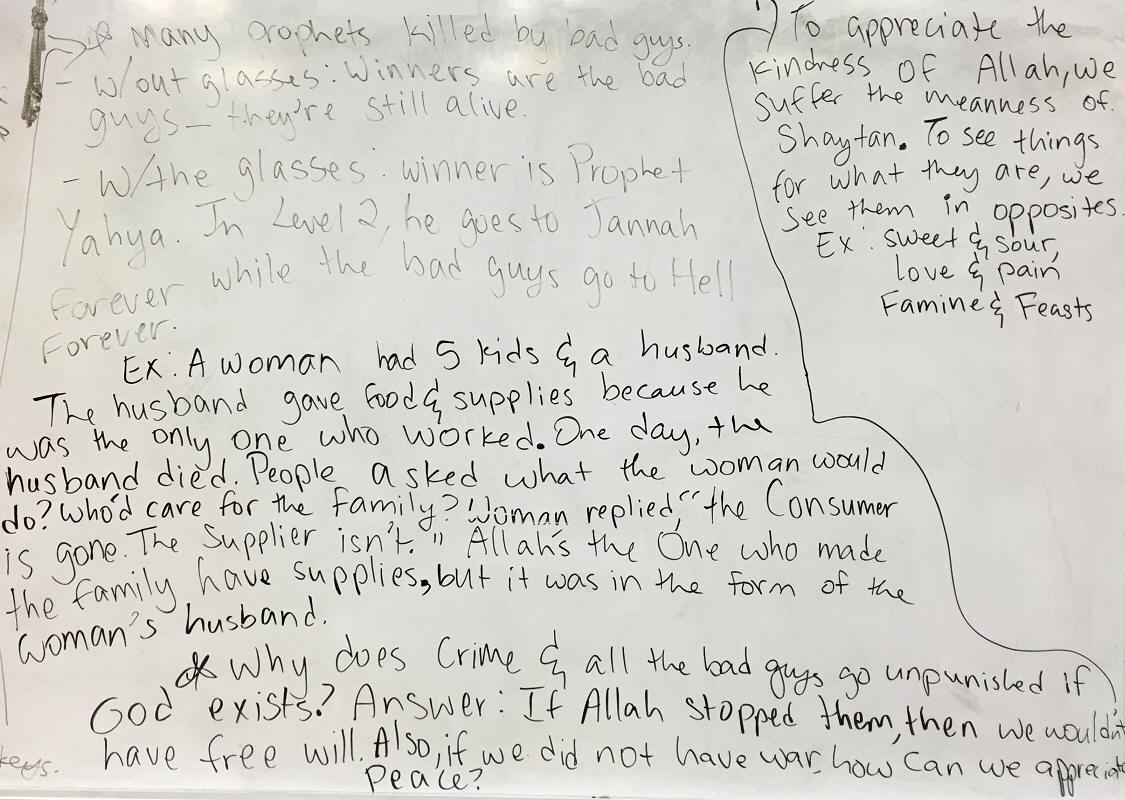 * Many prophets killed by bad guys.
- w/out glasses: Winners are the bad
guys_ they're still alive.
- W/the glasses: winner is Prophet
Yahya. In Level 2, he goes to Jannah
Forever while the bad guys go to Hell
Forever.
Ex: A woman had 5 kids & a husband.
The husband gave food & supplies because he
was the only one who worked. One day, the
husband died. People asked what the woman would
do? Who'd care for the family? Woman replied, "the Consumer
is gone. The Supplier isn't." Allah's the One who made
the family have supplies, but it was in the form of the
woman's husband.
* Why does Crime & all the bad guys go unpunished if
God exists? Answer: If Allah stopped them, then we wouldn't
have free will. Also, if we did not have war, how can we appreciate
Peace?
To appreciate the
kindness of Allah, we
suffer the meanness of
Shaytan. To see things
for what they are, we
see them in opposites.
Ex: sweet & sour,
love & pain
Famine & Feasts
keys.